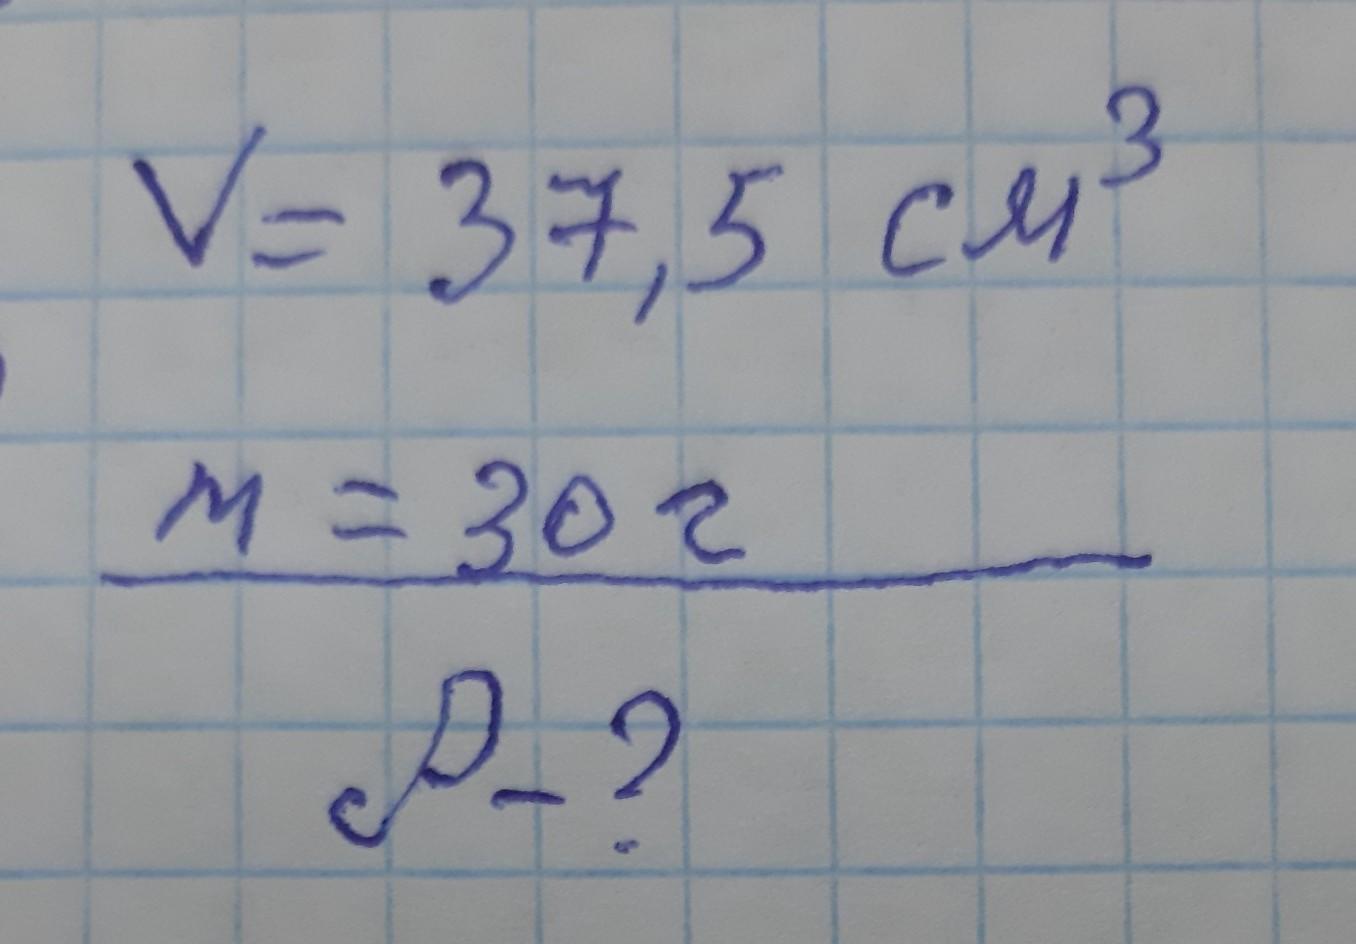 V= 37,5 см³
m = 30 г
ρ - ?